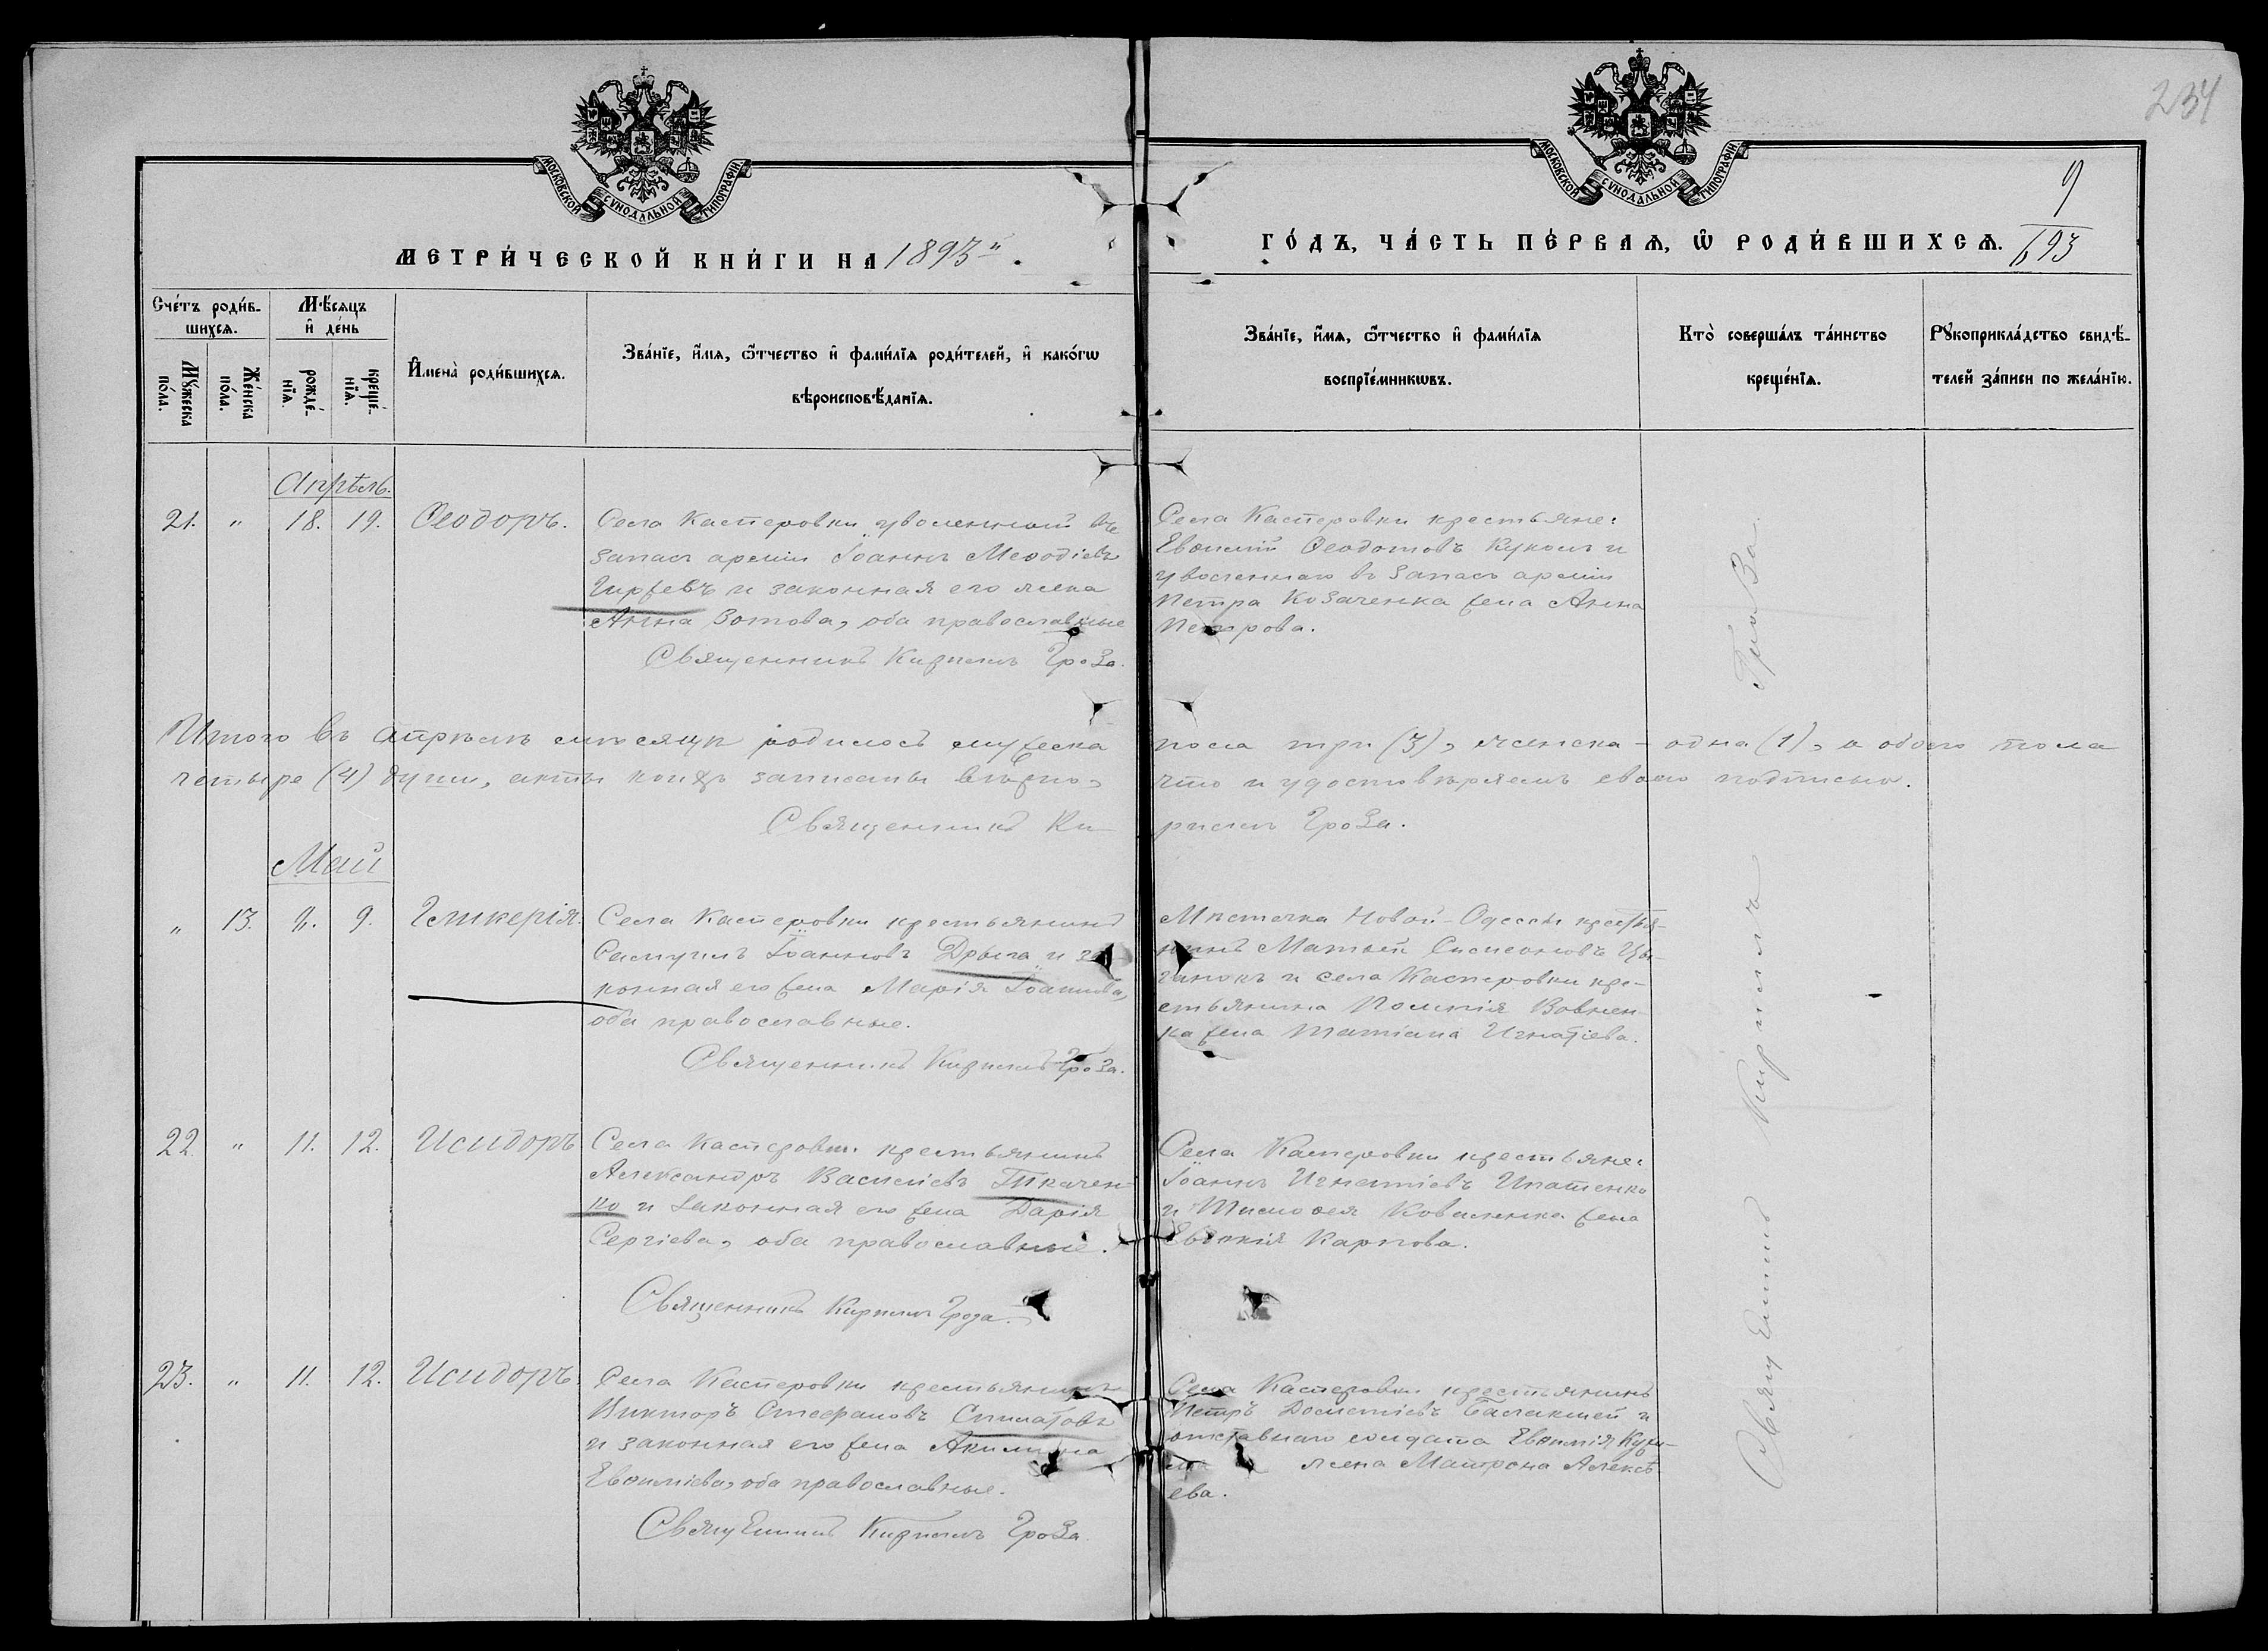 234
МОСКОВСКОЙ СѴНОДАЛЬНОЙ ТИПОГРАФІИ
МОСКОВСКОЙ СѴНОДАЛЬНОЙ ТИПОГРАФІИ
9
693
МЕТРИ́ЧЕСКОЙ КНИ́ГИ НА 1893 "
ГО́ДЪ, ЧА́СТЬ ПЕ́РВАѦ, Ѡ҆ РОДИ́ВШИХСѦ.
Сче́тъ роди́в-
шихсѧ.
Мѣ́сѧцъ
и҆ де́нь
Мꙋ́жеска
по́ла.
Же́нска
по́ла.
рожде́-
нїѧ.
креще́-
нїѧ.
И҆мена̀ роди́вшихсѧ.
Зва́нїе, и҆́мѧ, ѻ҆́тчество и҆ фами́лїѧ роди́телей, и҆ како́гѡ
вѣроисповѣ́данїѧ.
Зва́нїе, и҆́мѧ, ѻ҆́тчество и҆ фами́лїѧ
воспрїе́мникѡвъ.
Кто̀ соверша́лъ та́инство
креще́нїѧ.
Рꙋкоприкла́дство свидѣ́-
телей за́писи по жела́нїю.
Апрѣль.
21. " 18. 19. Ѳеодоръ.
Села Касперовки уволенный въ
запасъ арміи Іоаннъ Меѳодіевъ
и законная его жена
Анна Зотова, оба православные
Священникъ Кириллъ Гроза.
Села Касперовки крестьяне:
Евѳимій Ѳеодотовъ Куколъ и
уволеннаго въ запасъ арміи
Петра Козаченка жена Анна
Петрова.
Итого въ апрѣлѣ мѣсяцѣ родилось мужеска пола три (3), женска – одна (1), а обоего пола
четыре (4) души, акты коихъ записаны вѣрно, что и удостовѣряемъ своею подписью.
Священникъ Ки- риллъ Гроза.
Май
" 13. 8. 9. Гликерія.
Села Касперовки крестьянинъ
Самуилъ Іоанновъ Дрыга и за
конная его жена Марія Іоаннова,
оба православные.
Священникъ Кириллъ Гроза.
Мѣстечка Новой-Одессы крестья-
нинъ Матѳей Симеоновъ Цы-
ганокъ и села Касперовки кре-
стьянина Вовчен-
ка жена Татіана Игнатіева.
22. " 11. 12. Исидоръ
Села Касперовки крестьянинъ
Александръ Василіевъ Ткачен-
ко и законная его жена Дарія
Сергіева, оба православные.
Священникъ Кириллъ Гроза.
Села Касперовки крестьяне:
Іоаннъ Игнатіевъ Ипатенко
и Тимоѳея Коваленка жена
Карпова.
23. " 11. 12. Исидоръ.
Села Касперовки крестьянинъ
Викторъ Стефановъ
и законная его жена Акилина
Евѳиміева, оба православные.
Священникъ Кириллъ Гроза.
Села Касперовки крестьянинъ
Петръ Дометіевъ и
отставнаго солдата Евѳимія
жена Матрона Алексѣ-
ева.
Священникъ Кириллъ Гроза.